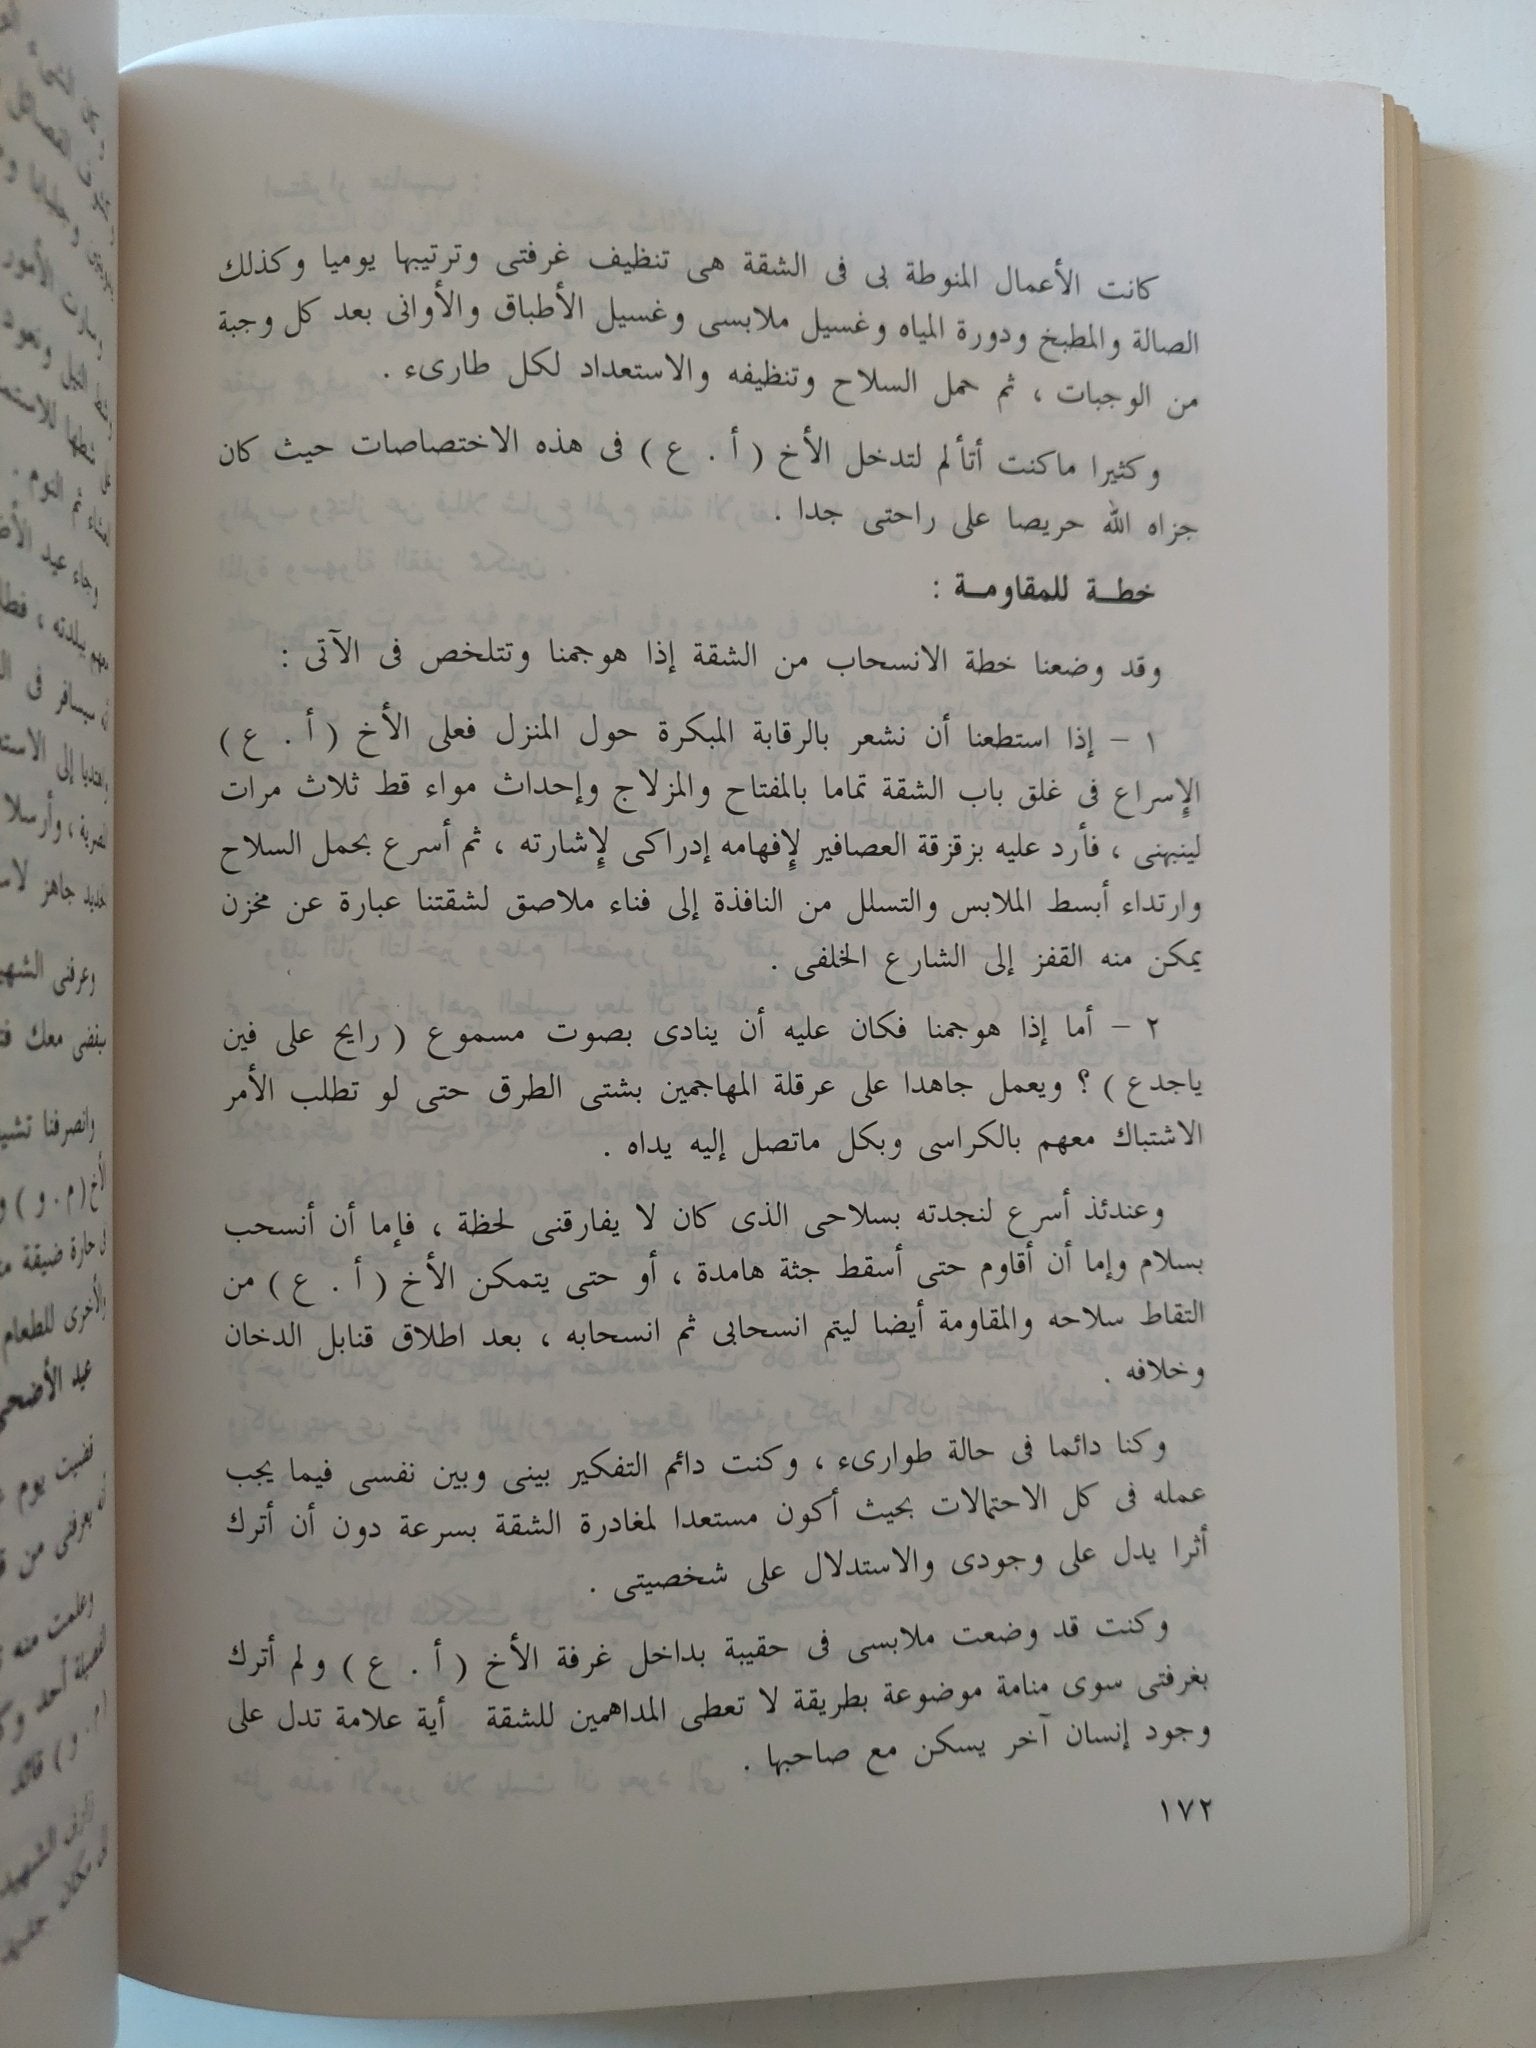 كانت الأعمال المنوطة بى فى الشقة هى تنظيف غرفتى وترتيبها يوميا وكذلك
الصالة والمطبخ ودورة المياه وغسيل ملابسى وغسيل الأطباق والأوانى بعد كل وجبة
من الوجبات ، ثم حمل السلاح وتنظيفه والاستعداد لكل طارىء .
وكثيرا ماكنت أتألم لتدخل الأخ ( أ . ع ) فى هذه الاختصاصات حيث كان
جزاه الله حريصا على راحتى جدا .
خطــة للمقاومــة :
وقد وضعنا خطة الانسحاب من الشقة إذا هوجمنا وتتلخص فى الآتى :
١ – إذا استطعنا أن نشعر بالرقابة المبكرة حول المنزل فعلى الأخ ( أ . ع )
الإسراع فى غلق باب الشقة تماما بالمفتاح والمزلاج وإحداث مواء قط ثلاث مرات
لينبهنى ، فأرد عليه بزقزقة العصافير لإفهامه إدراكى لإشارته ، ثم أسرع بحمل السلاح
وارتداء أبسط الملابس والتسلل من النافذة إلى فناء ملاصق لشقتنا عبارة عن مخزن
يمكن منه القفز إلى الشارع الخلفى .
٢ – أما إذا هوجمنا فكان عليه أن ينادى بصوت مسموع ( رايح على فين
ياجدع ) ؟ ويعمل جاهدا على عرقلة المهاجمين بشتى الطرق حتى لو تطلب الأمر
الاشتباك معهم بالكراسى وبكل ماتصل إليه يداه .
وعندئذ أسرع لنجدته بسلاحى الذى كان لا يفارقنى لحظة ، فإما أن أنسحب
بسلام وإما أن أقاوم حتى أسقط جثة هامدة ، أو حتى يتمكن الأخ ( أ . ع ) من
التقاط سلاحه والمقاومة أيضا ليتم انسحابى ثم انسحابه ، بعد اطلاق قنابل الدخان
وخلافه .
وكنا دائما فى حالة طوارىء ، وكنت دائم التفكير بينى وبين نفسى فيما يجب
عمله فى كل الاحتمالات بحيث أكون مستعدا لمغادرة الشقة بسرعة دون أن أترك
أثرا يدل على وجودى والاستدلال على شخصيتى .
وكنت قد وضعت ملابسى فى حقيبة بداخل غرفة الأخ ( أ . ع ) ولم أترك
بغرفتى سوى منامة موضوعة بطريقة لا تعطى المداهمين للشقة أية علامة تدل على
وجود إنسان آخر يسكن مع صاحبها .
١٧٢